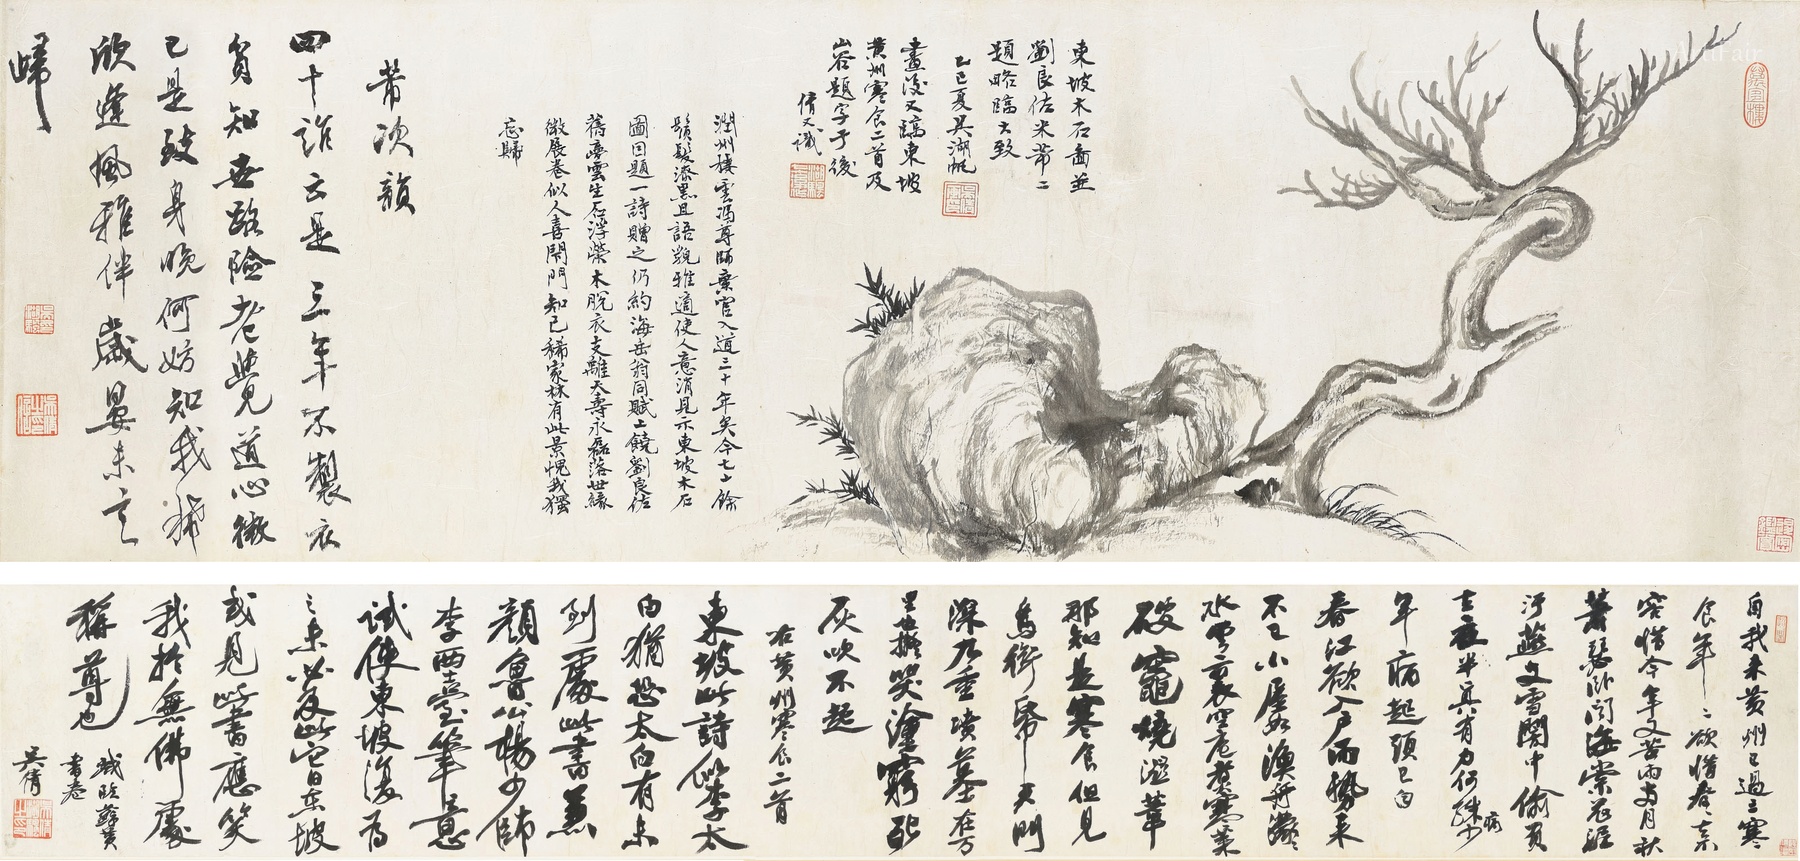 東坡木石圖並
劉良佐米芾二
題略臨大致
乙巳夏吳湖帆
畫後又臨東坡
黃州寒食二首及
山谷題字于後
倩又識
潤州棲雲馮尊師棄官入道三十年矣今七十餘
鬚髮漆黑且語貌雅適使人意消見示東坡木石
圖因題一詩贈之仍約海岳翁同賦上饒劉良佐
舊夢雲生石浮榮木脫衣支離天壽永磊落世緣
微展卷似人喜閉門知己稀家林有此景愧我獨
忘歸
芾次韻
四十誰云是三年不製衣
貧知世路險老覺道心微
已是致身晚何妨知我稀
欣逢風雅伴歲晏未言
歸
自我來黃州已過三寒
食年〻欲惜春〻去不
容惜今年又苦雨兩月秋
蕭瑟臥聞海棠花泥
汙燕支雪闇中偷負
去夜半真有力何殊少
病
年病起頭已白
春江欲入戶雨勢來
不已小屋如漁舟濛〻
水雲裏空庖煮寒菜
破竈燒濕葦
那知是寒食但見
烏銜帋君門
深九重墳墓在万
里也擬哭塗窮死
灰吹不起
右黃州寒食二首
東坡此詩似李太
白猶恐太白有未
到處此書兼
顏魯公楊少師
李西臺筆意
試使東坡復為
之未必及此它日東坡
或見此書應笑
我於無佛處
稱尊也
戲臨蘇黃
書卷
吳倩